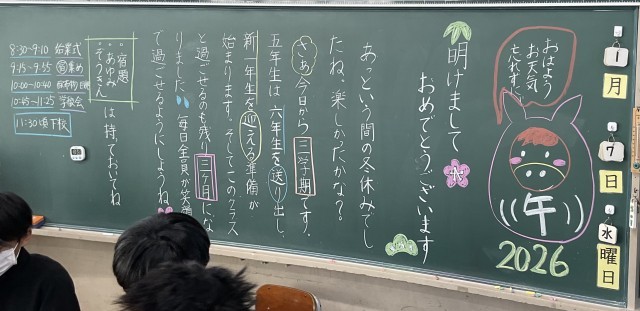 1月
7日
水曜日
おはよう
お天気
忘れずに
午
2026
明けまして
おめでとうございます
あっという間の冬休みでし
たね。楽しかったかな？
さぁ今日から三学期です！
五年生は六年生を送り出し、
新一年生を迎える準備が
始まります。そしてこのクラス
と過ごせるのも残り三ヶ月にな
りました 毎日全員が笑
で過ごせるようにしようね
・宿題
・あゆみ
・ぞうきん
は持ておいでね
8:30~9:10 始業式
9:15~9:55 集め
10:00~10:40
10:45~11:25 学級会
11:30頃下校